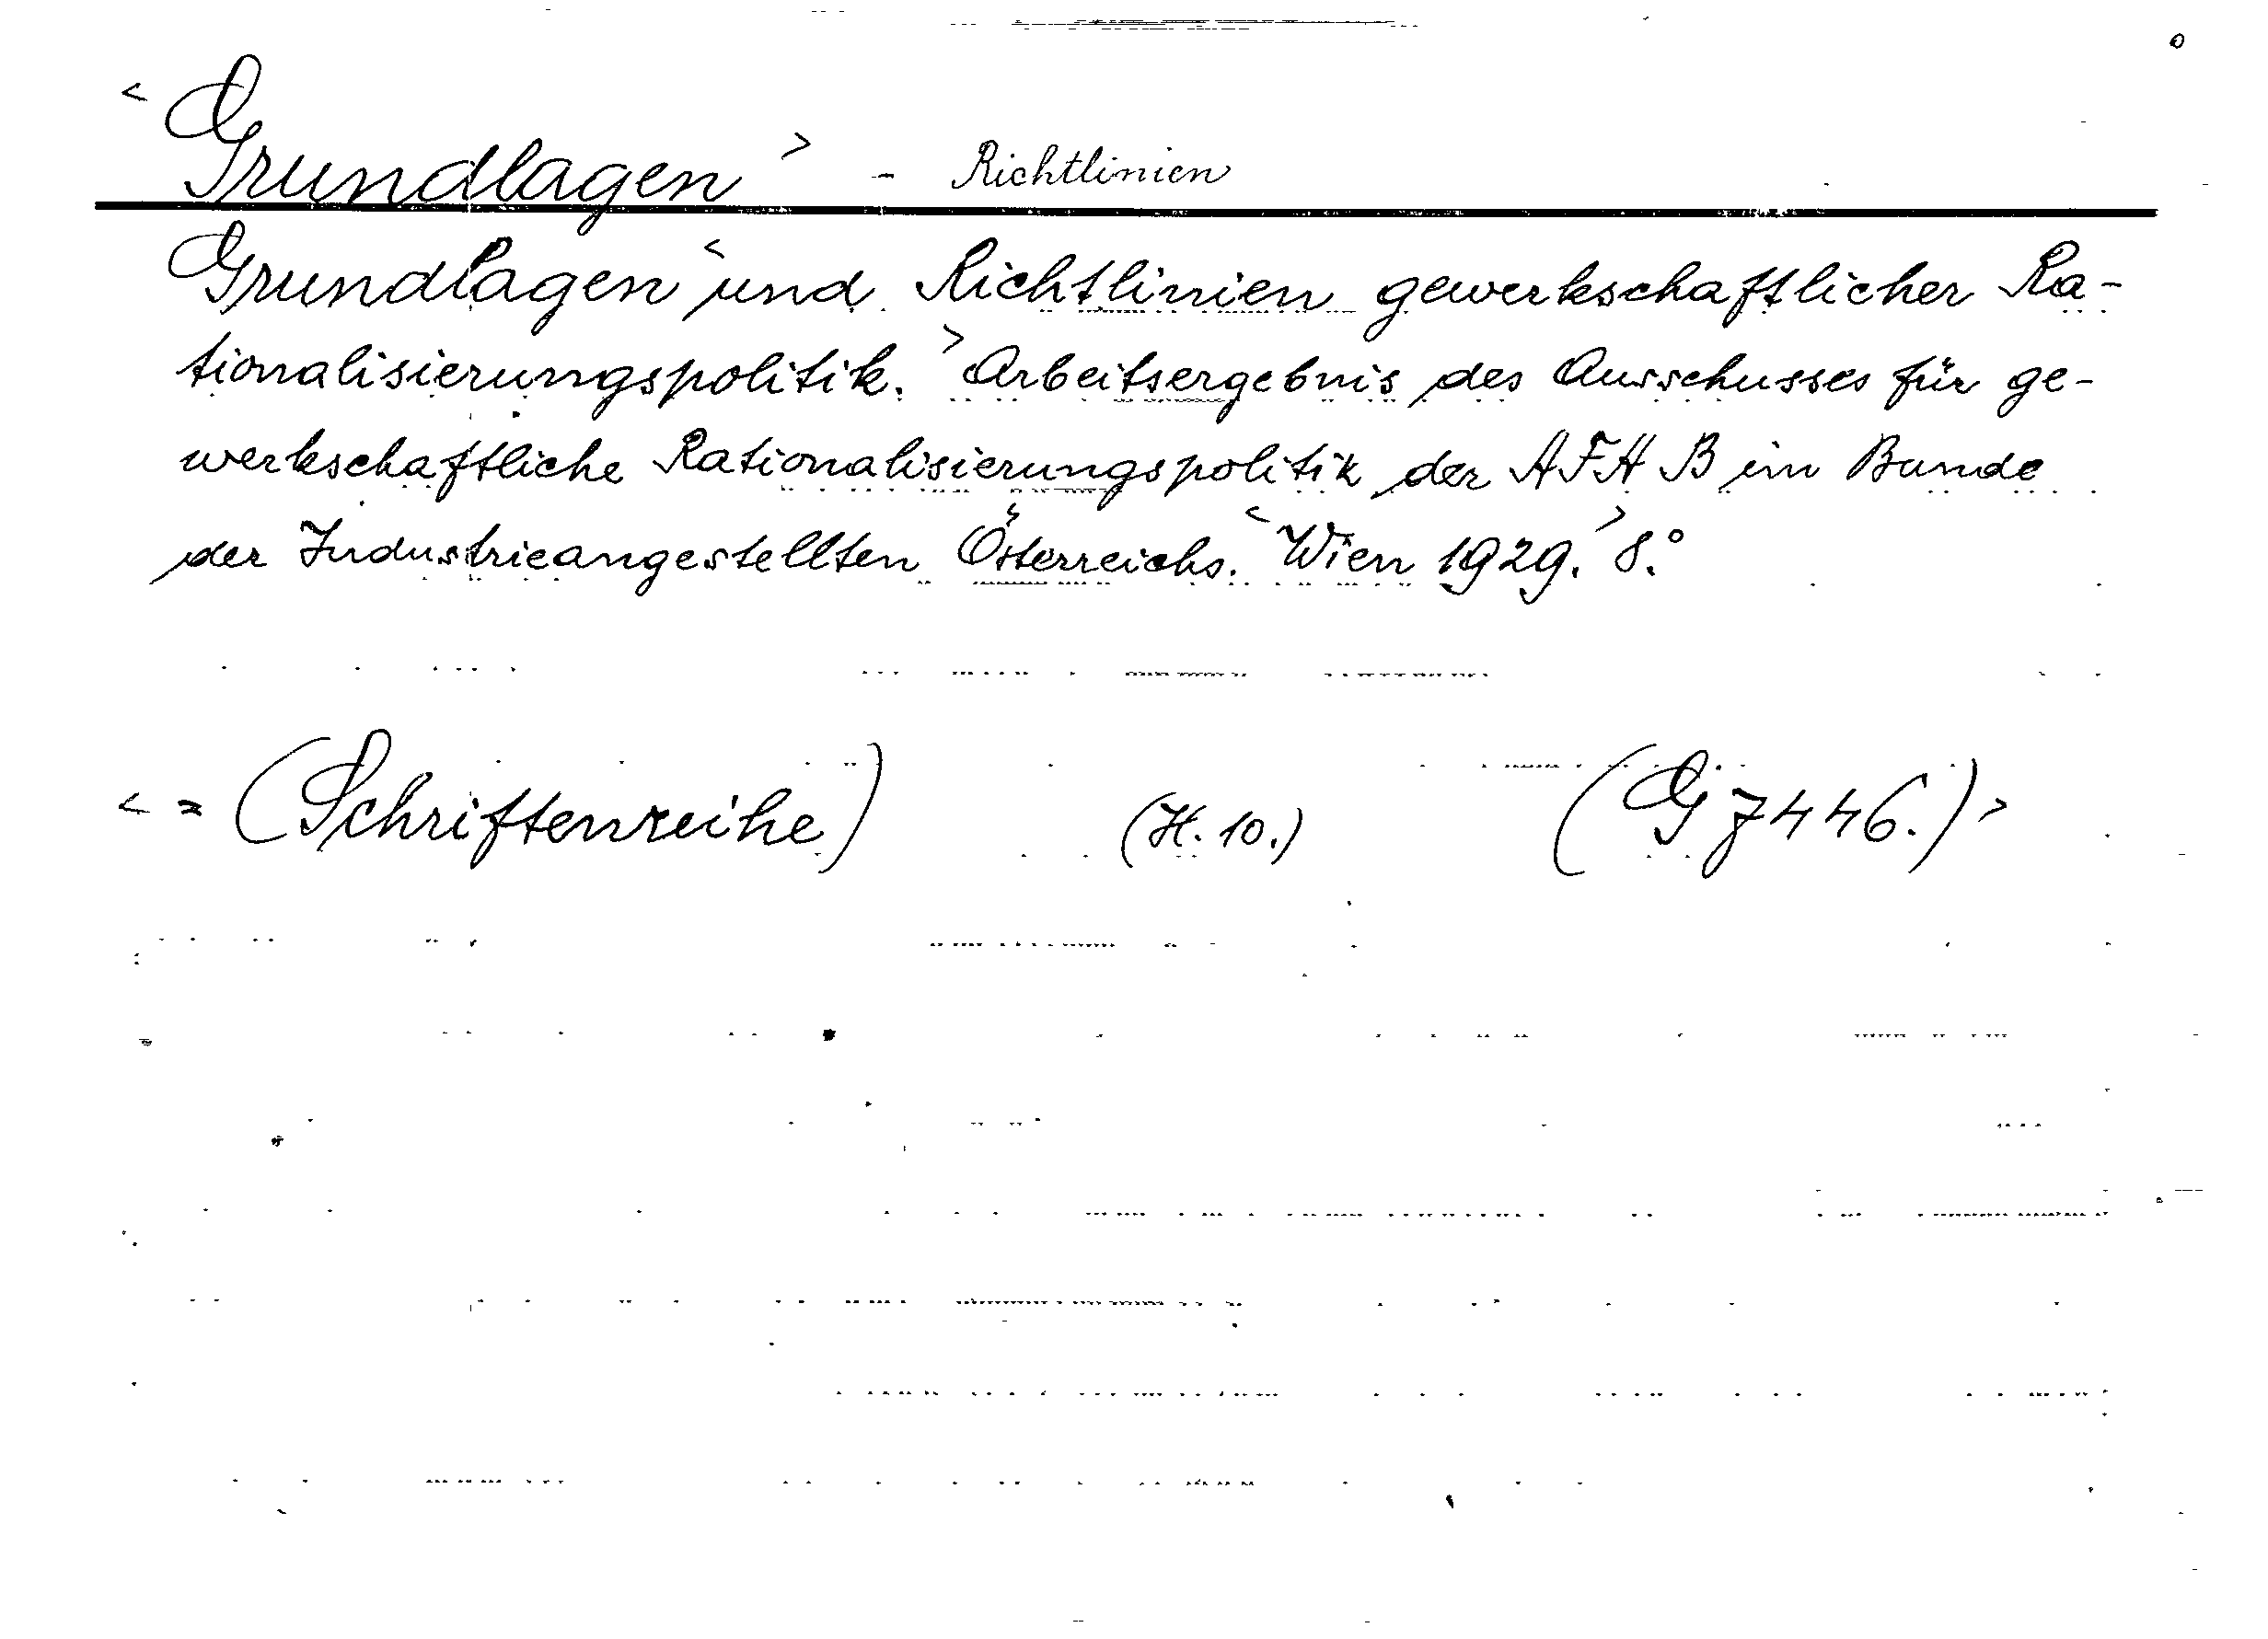 < Grundlagen > - Richtlinien
Grundlagen < und Richtlinien gewerkschaftlicher Ra-
tionalisierungspolitik. > Arbeitsergebnis des Ausschusses für ge-
werkschaftliche Rationalisierungspolitik der AFA B im Bunde
der Industrieangestellten Österreichs. < Wien 1929. > 8.°
< = (Schriftenreihe) (H. 10.) (G 7446.) >